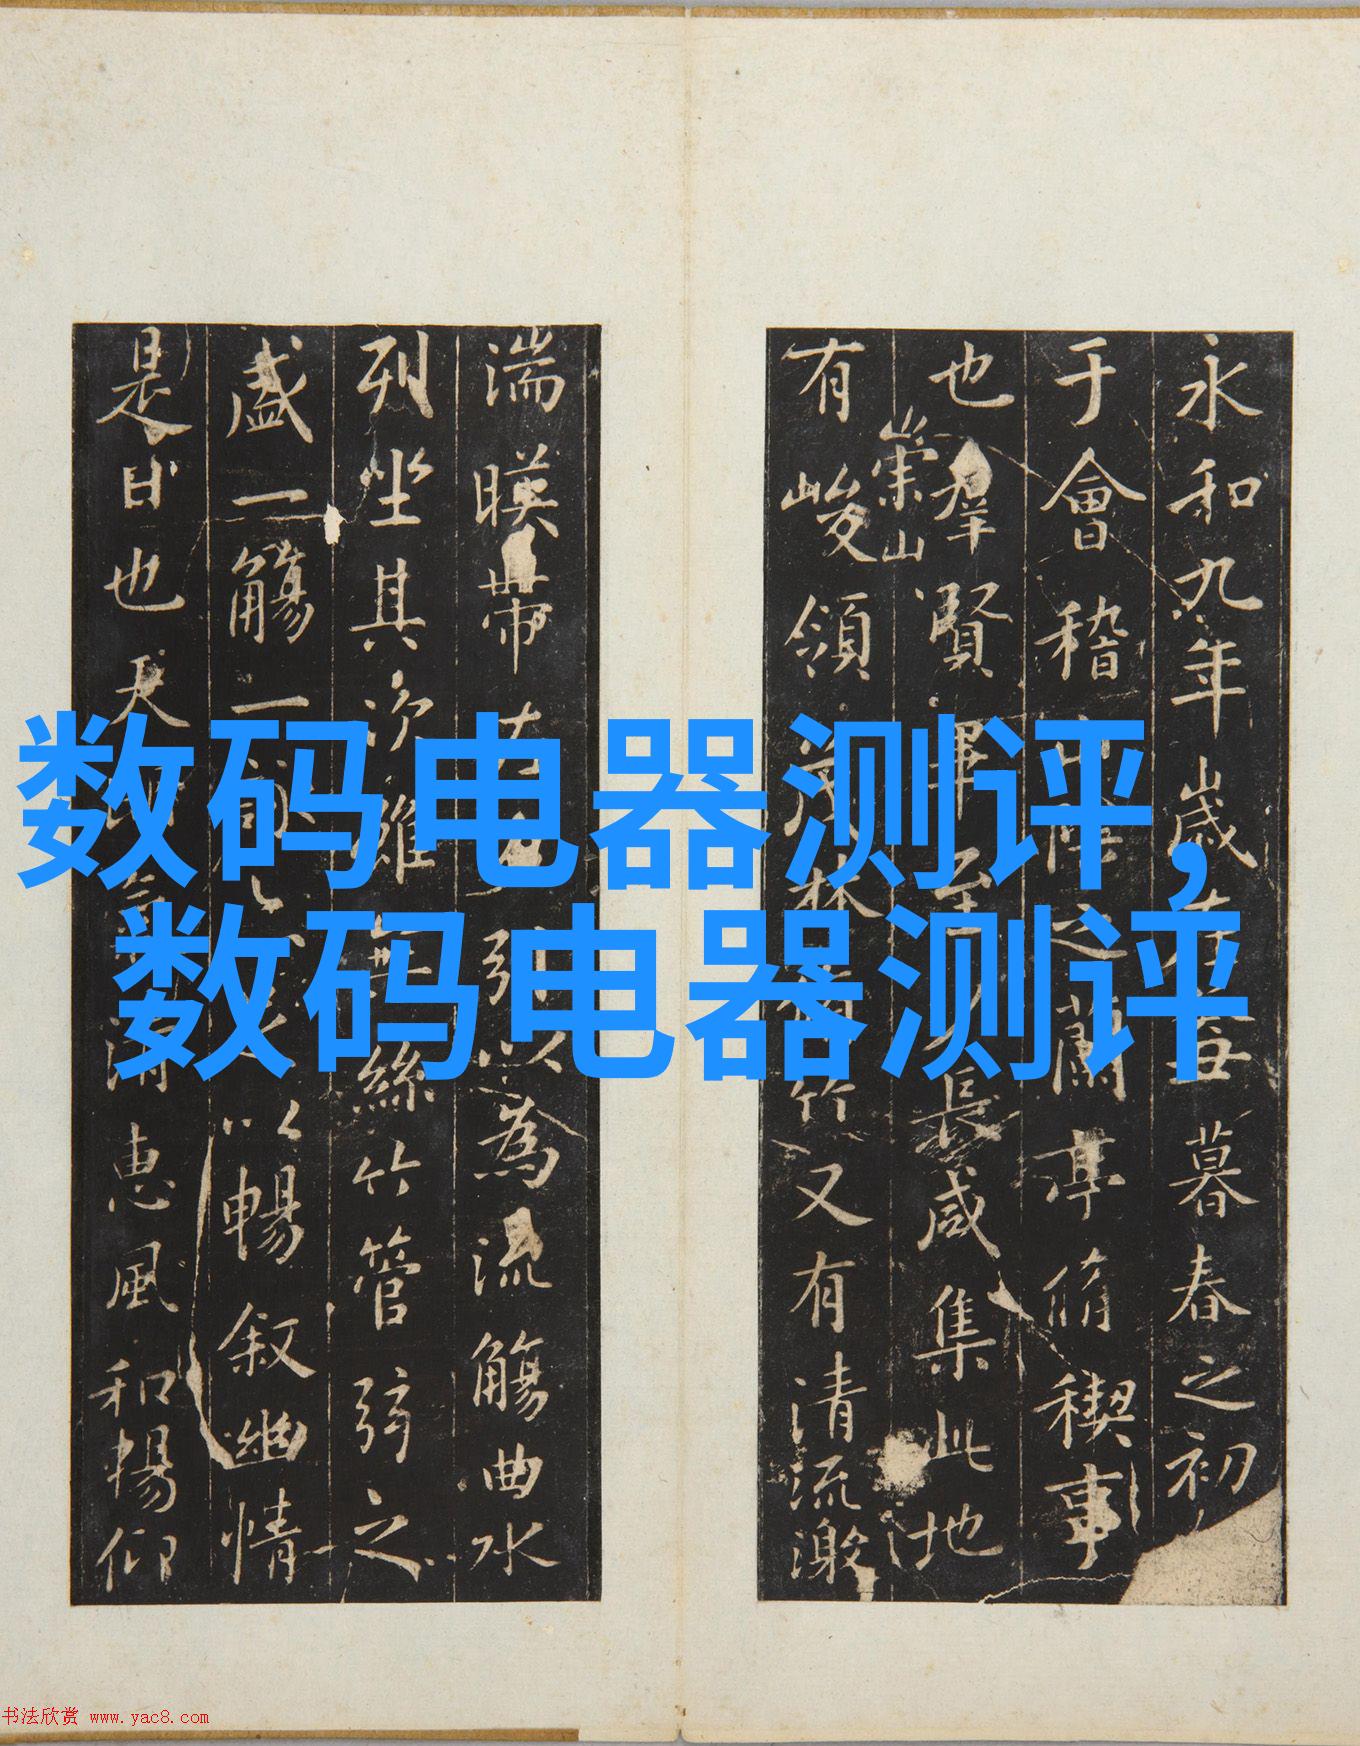 永和九年歲在丑暮春之初
于會稽山陰之蘭亭脩稧事
也羣賢畢至少長咸集此地
崇山
有峻領茂林脩竹又有清流激
湍暎帶左右引以為流觴曲水
列坐其次雖無絲竹管弦之
盛一觴一詠以暢叙幽情
是日也天朗清惠風和暢仰
数码电器测评，
数码电器测评
书法欣赏 www.yac8.com